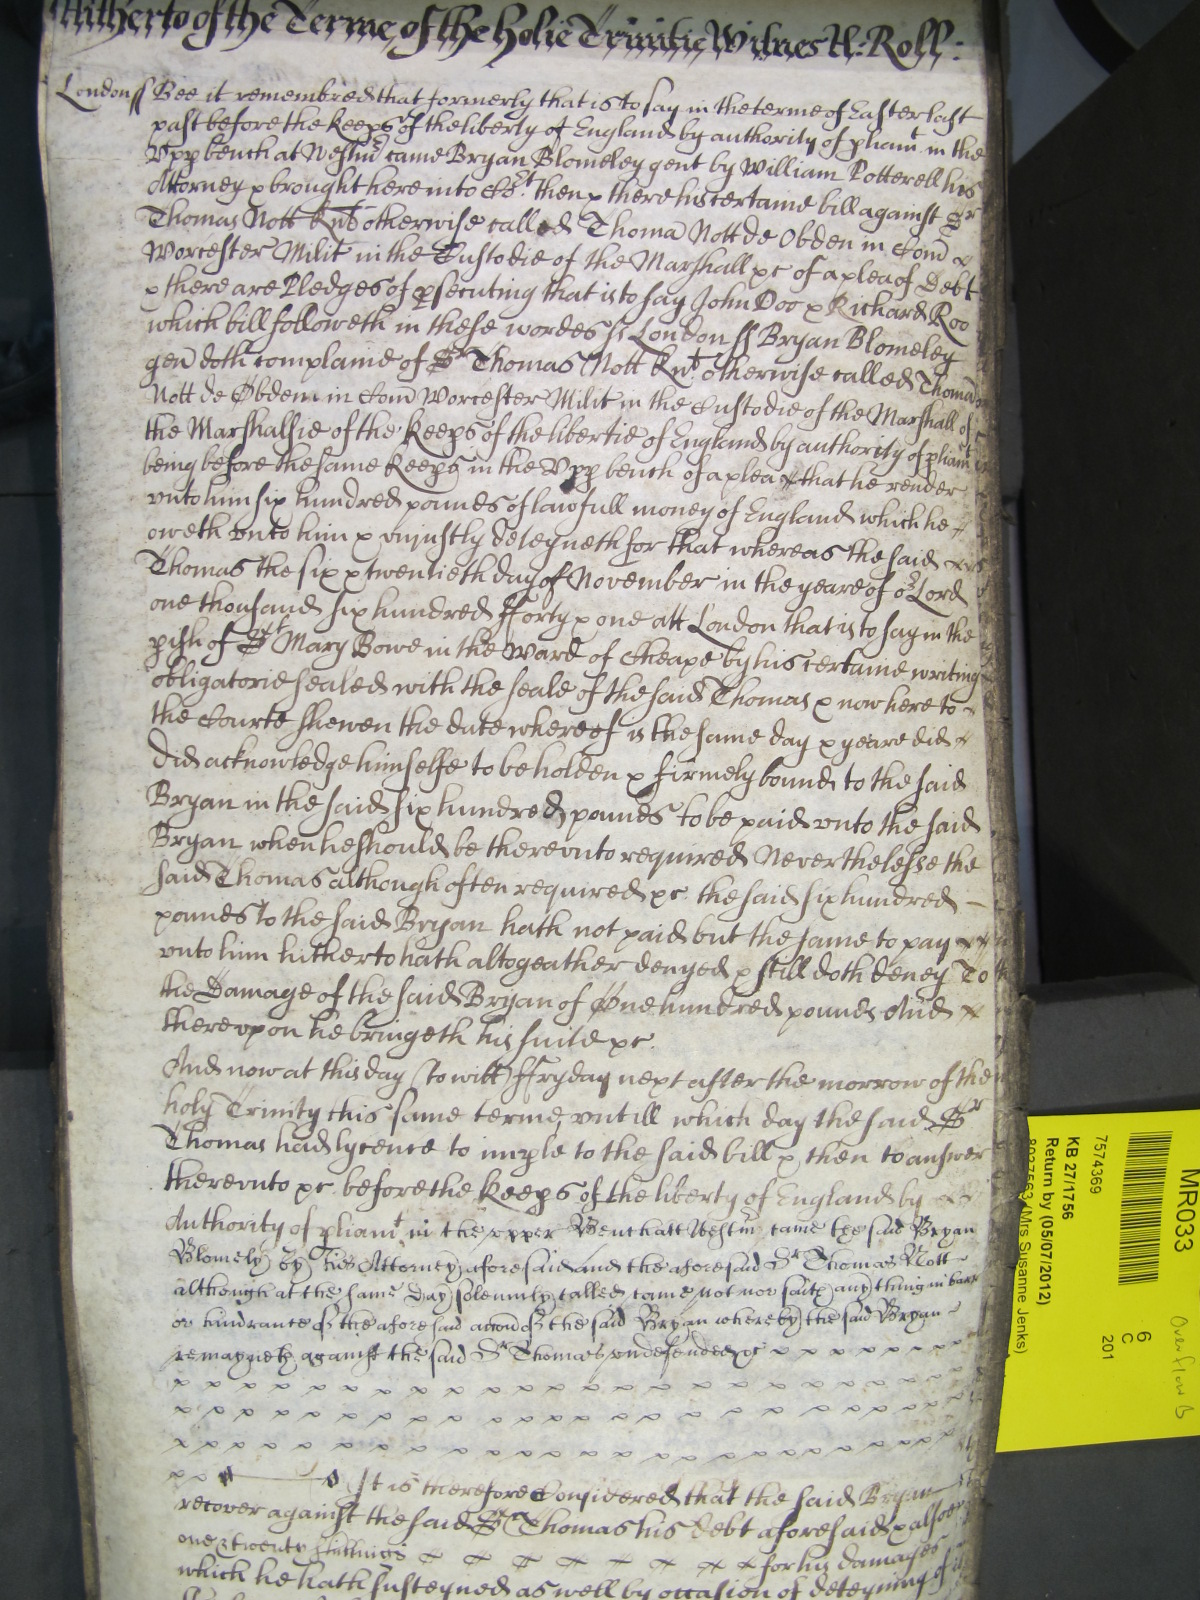 Hitherto of the Terme of the holie Trinitie Witnes H: Roll:
London ss Bee it remembred that formerly that is to say in the terme of Easter last
past before the Keeps of the liberty of England by authority of pliamt in the
Upp bench at Westmr came Bryan Blomeley gent by William Potterell his
Attorney & brought here into Cort then & there his certaine bill against Sr
Thomas Nott Knt otherwise called Thoma Nott de Obden in Com
Worcester Milit in the Custodie of the Marshall &c of a plea of Debt
& there are Pledges of psecuting that is to say John Doo & Richard Roo
which bill followeth in these wordes ss London ss Bryan Blomeley
gen doth complaine of Sr Thomas Nott Knt otherwise called Thoma
Nott de Obden in Com Worcester Milit in the Custodie of the Marshall of
the Marshalsie of the Keeps of the libertie of England by authority of pliamt
being before the same Keeps in the Upp bench of a plea that he render
unto him six hundred pounds of lawfull money of England which he
oweth unto him & uniustly deteyneth for that whereas the said
Thomas the six & twentieth day of November in the yeare of or Lord
one thousand six hundred fforty & one att London that is to say in the
pish of St Mary Bowe in the Ward of Cheape by his certaine writing
obligatorie sealed with the seale of the said Thomas & now here to
the Courte shewen the date whereof is the same day & yeare did
did acknowledge himselfe to be holden & firmely bound to the said
Bryan in the said six hundred pounds to be paid unto the said
Bryan when he should be thereunto required Neverthelesse the
said Thomas although often required &c the said six hundred
pounds to the said Bryan hath not paid but the same to pay
unto him hitherto hath altogeather denyed & still doth deney To
the Damage of the said Bryan of One hundred pounds And
thereupon he bringeth his suite &c.
And now at this day (to witt) ffryday next after the morrow of the
holy Trinity this same terme untill which day the said Sr
Thomas had lycence to imple to the said bill & then to answer
thereunto &c before the Keeps of the liberty of England by
Authority of pliamt in the upper Bench att Westmr came the said Bryan
Blomely by his Attorney aforesaid and the aforesaid Sr Thomas Nott
although at the same day solemnly called came not nor saith any thing in barr
or hindrance of the aforesaid accon of the said Bryan whereby the said Bryan
remayneth against the said Sr Thomas undefended &c
It is therefore Considered that the said Bryan
recover against the said Sr Thomas his debt aforesaid & alsoe
one & twenty shillings for his damages
which he hath susteyned as well by occasion of deteyning of
MR033
6
C
201
Overflow B
7574369
KB 27/1756
Return by (05/07/2012)
(Mrs Susanne Jenks)